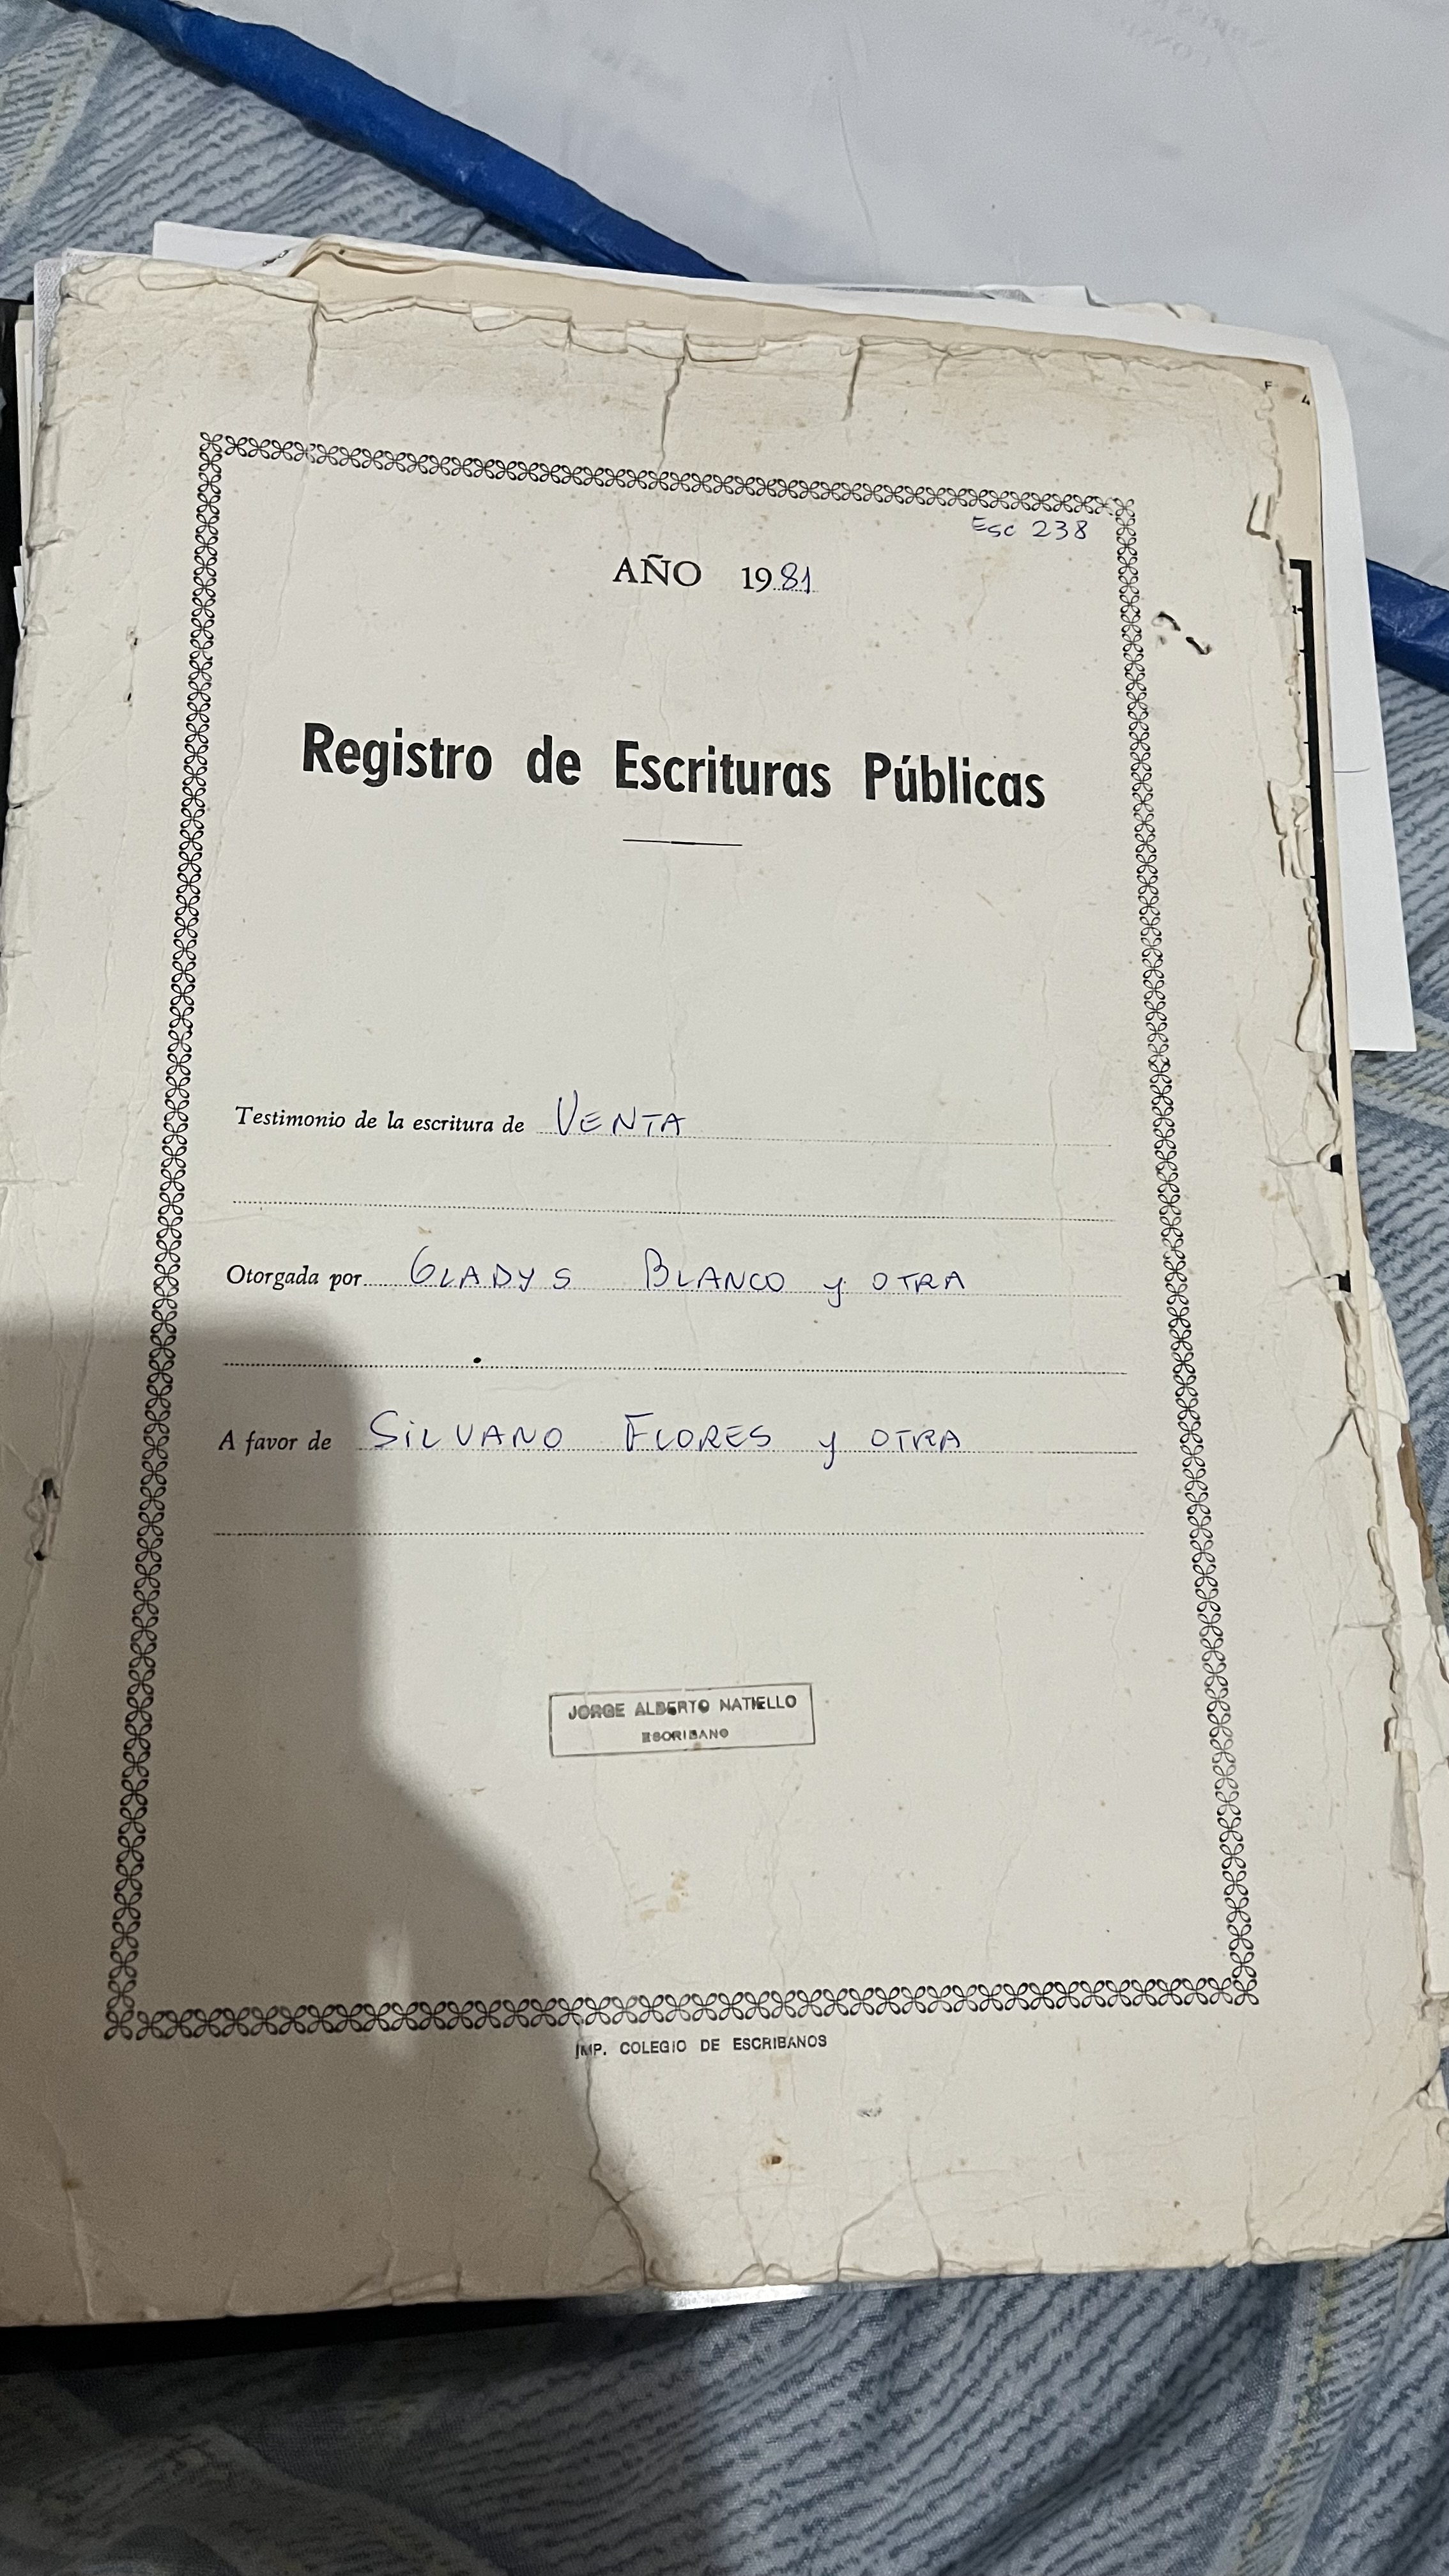 Esc 238
AÑO 1981
Registro de Escrituras Públicas
Testimonio de la escritura de VENTA
Otorgada por GLADYS BLANCO y OTRA
A favor de SILVANO FLORES y OTRA
JORGE ALBERTO NATIELLO
ESCRIBANO
IMP. COLEGIO DE ESCRIBANOS